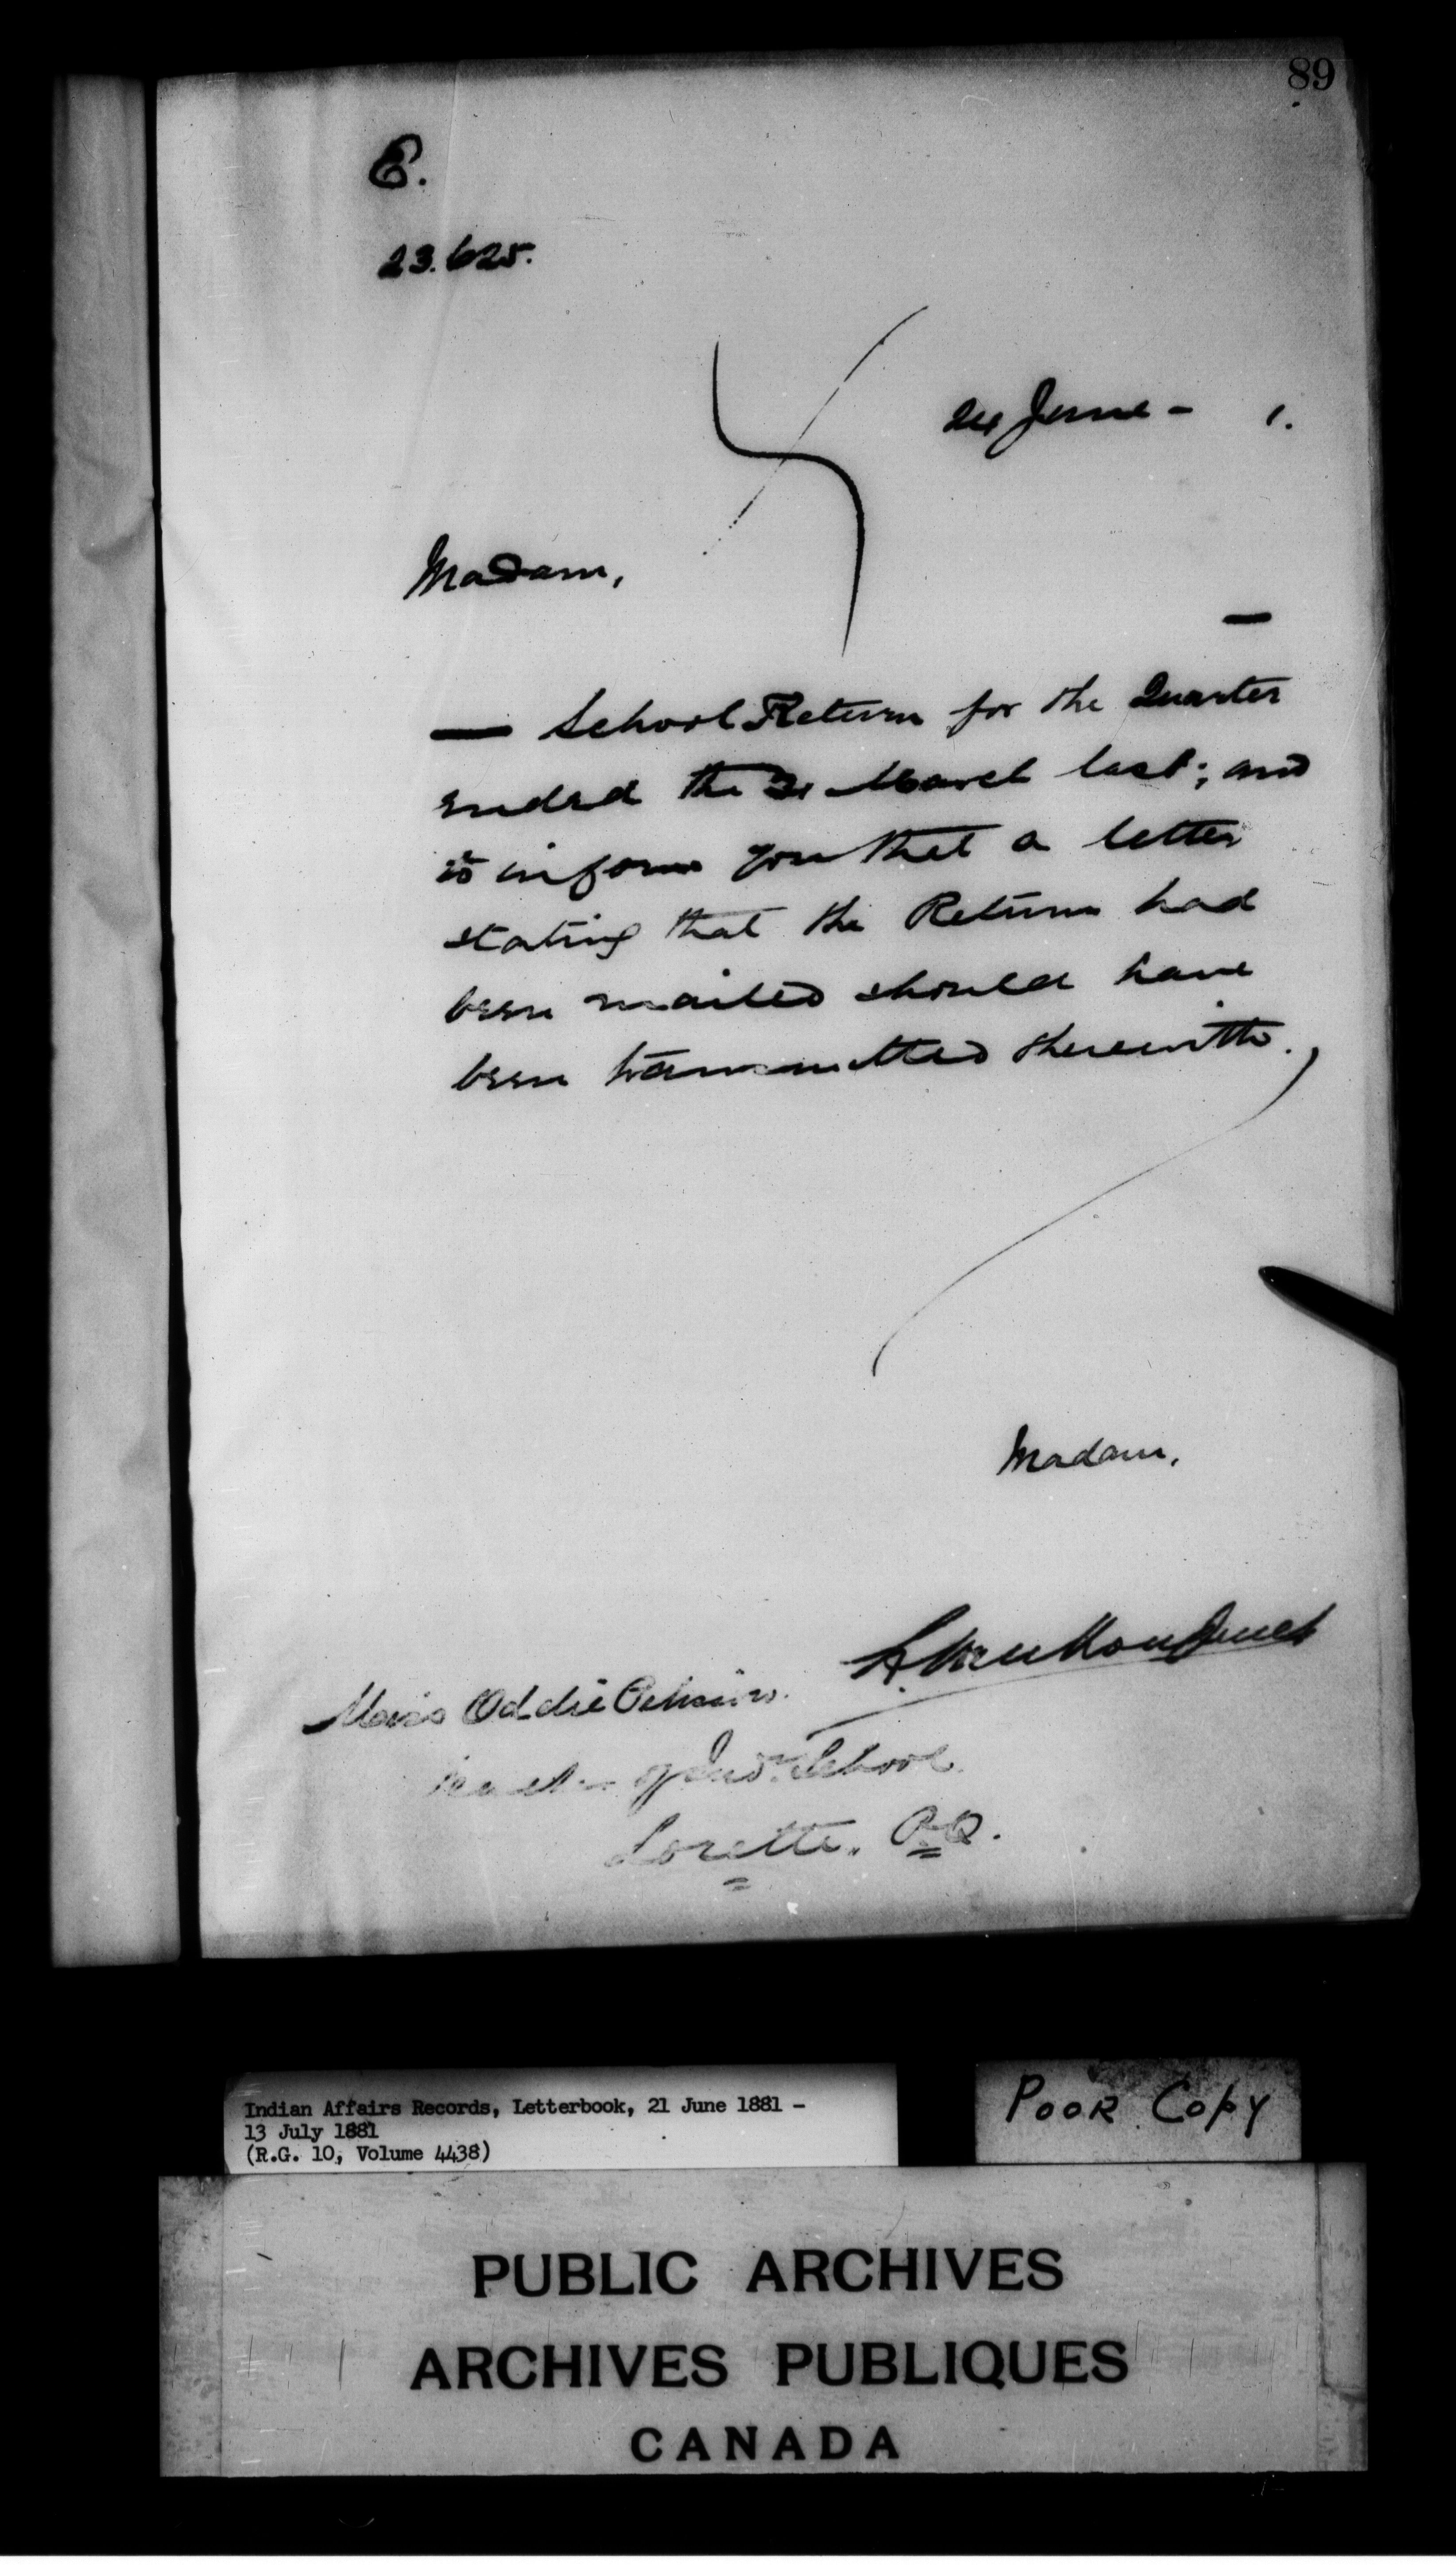 89
E.
23.625.
24 June - 1.
Madam,
— School Return for the Quarter
ended the 31 March last; and
to inform you that a letter
stating that the Return had
been mailed should have
been transmitted therewith.
Madam,
Miss Oddie
Teacher of Ind. School
Lorette. P.Q.
Indian Affairs Records, Letterbook, 21 June 1881 -
13 July 1881
(R.G. 10, Volume 4438)
POOR Copy
PUBLIC ARCHIVES
ARCHIVES PUBLIQUES
CANADA